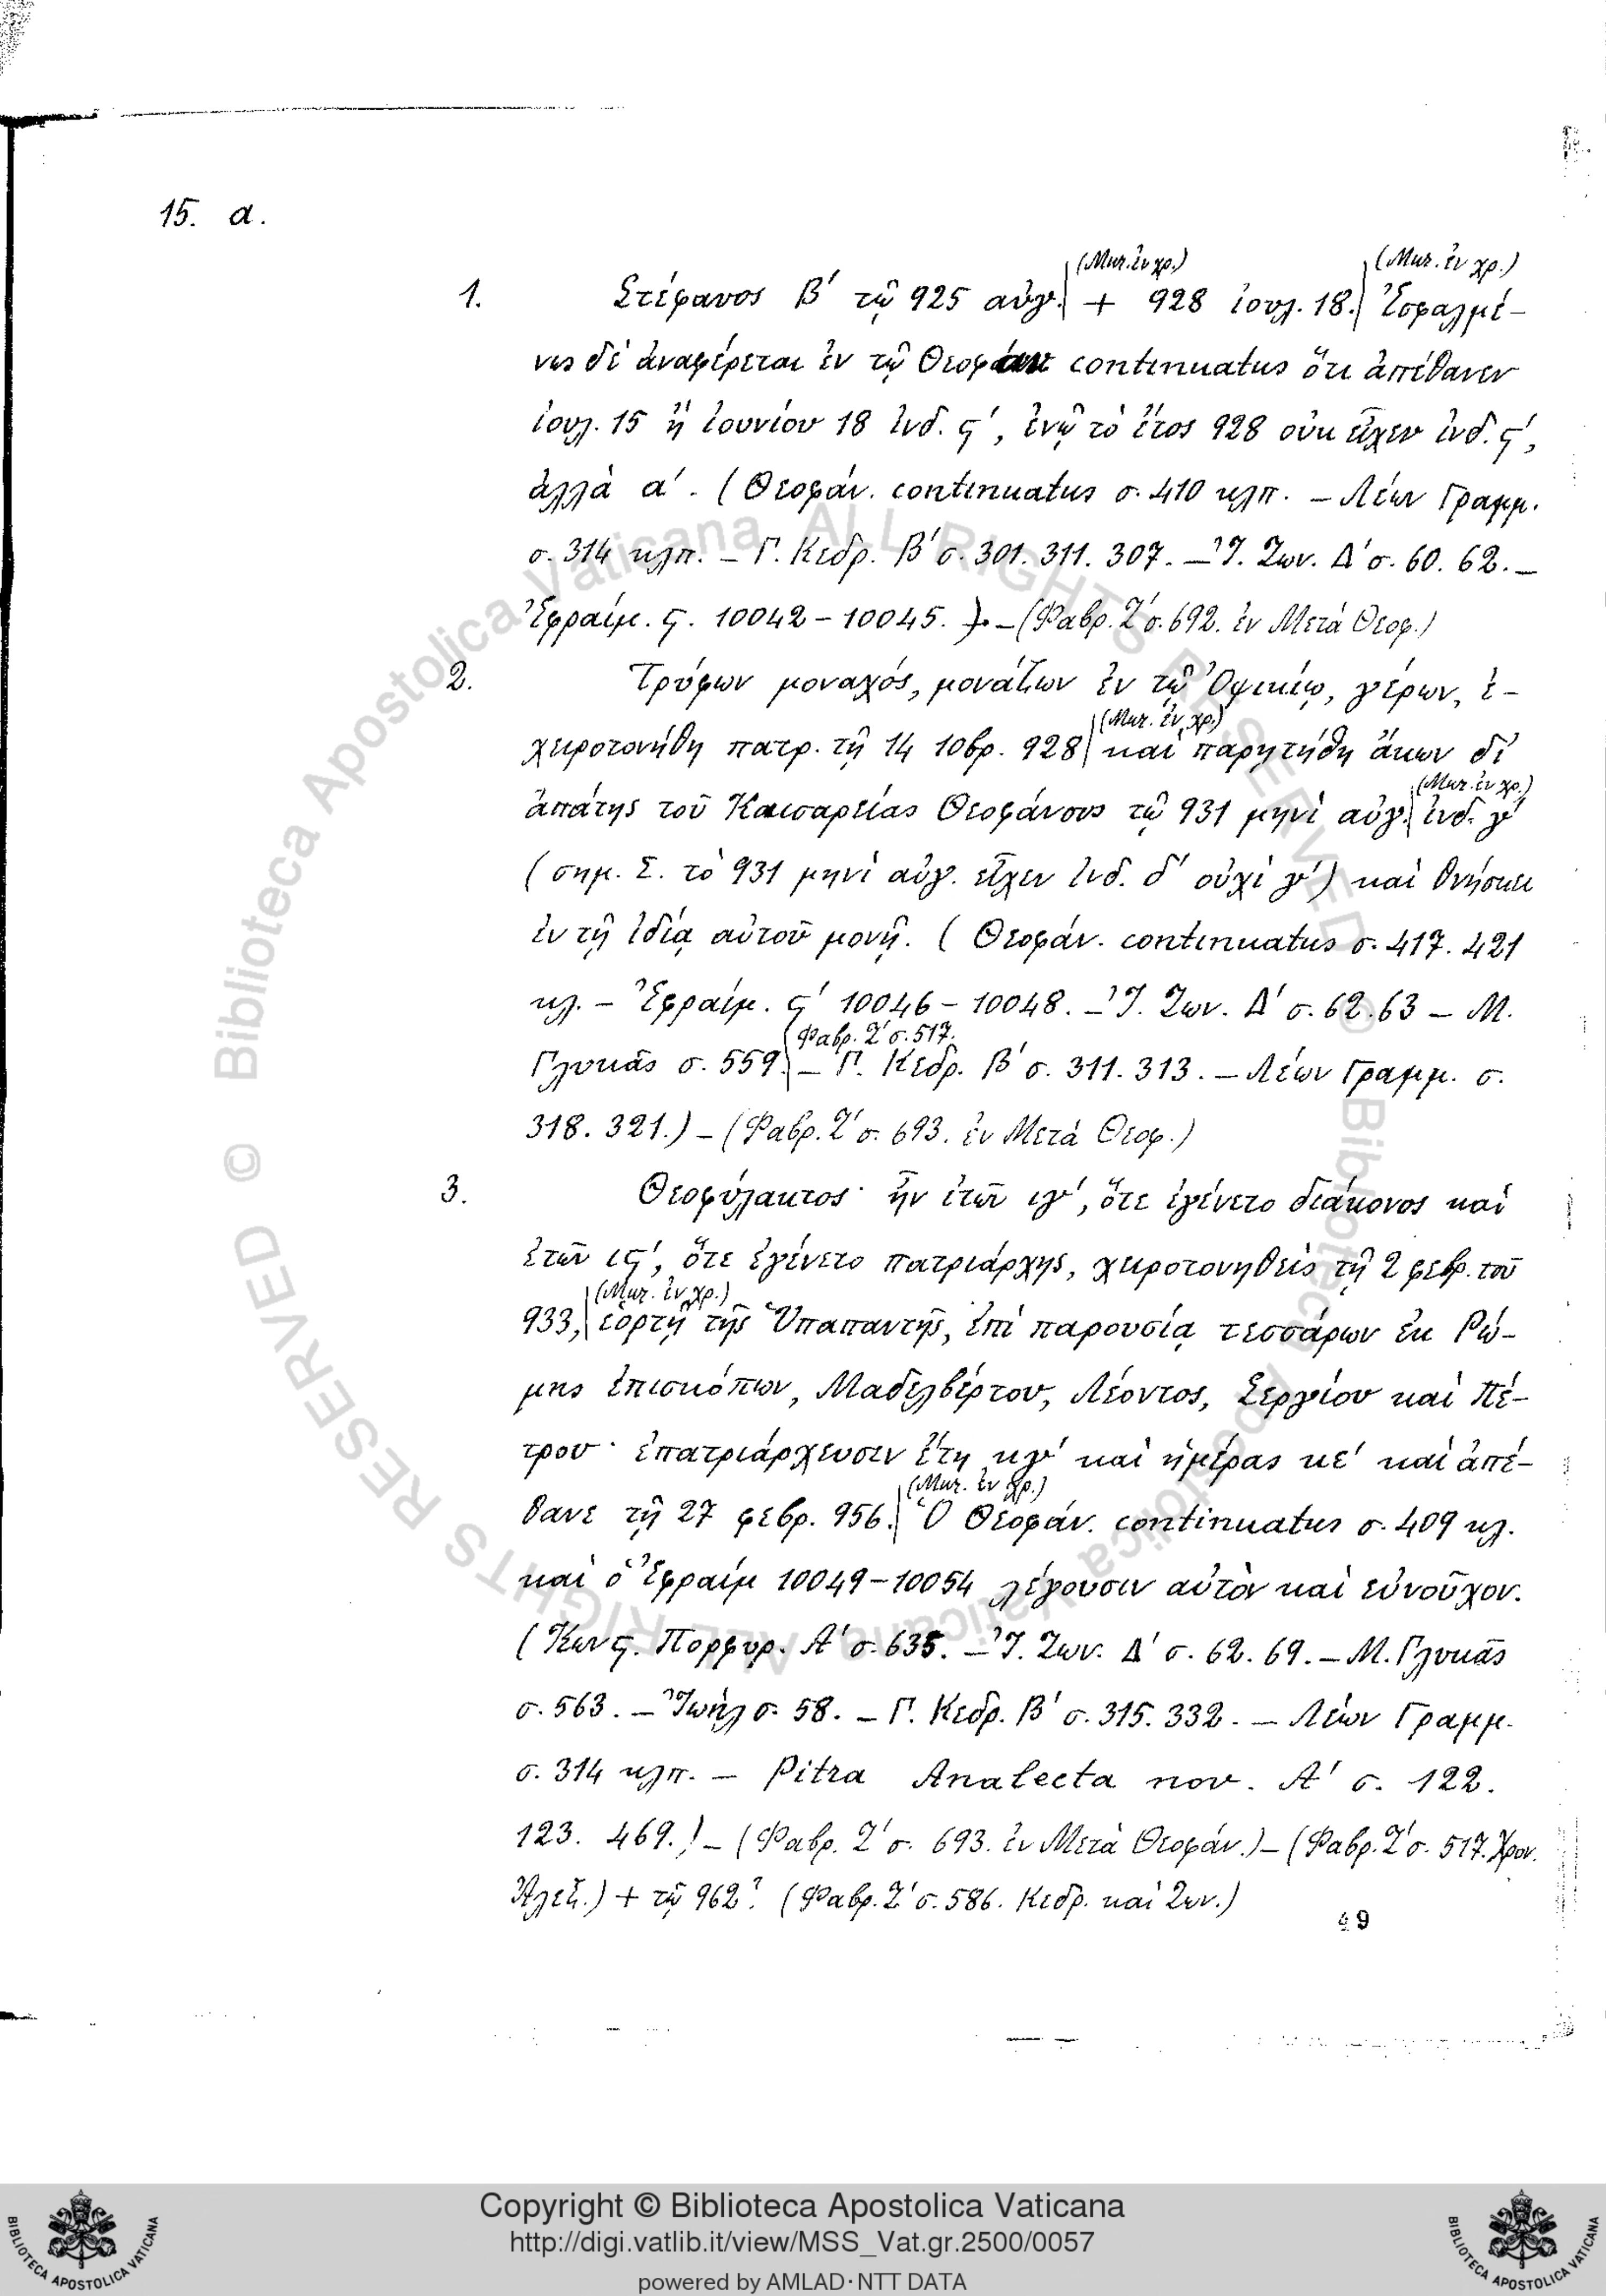 15. α.
(Μητ. ἐν χρ.) (Μητ. ἐν χρ.)
1. Στέφανος Β΄ τῷ 925 αὐγ. + 928 ἰουλ. 18. Ἐσφαλμέ–
νως δὲ ἀναφέρεται ἐν τῷ Θεοφάν continuatus ὅτι ἀπέθανεν
ἰουλ. 15 ἢ ἰουνίου 18 ἰνδ. ϛ΄, ἐνῷ τὸ ἔτος 928 οὐκ εἶχεν ἰνδ. ϛ΄,
ἀλλὰ α΄. (Θεοφάν. continuatus σ. 410 κλπ. – Λέων Γραμμ.
σ. 314 κλπ. – Γ. Κεδρ. Β΄ σ. 301. 311. 307. – Ἰ. Ζων. Δ΄ σ. 60. 62. –
Ἐφραίμ. ϛ. 10042 – 10045. ). – (Φαβρ. Ζ΄ σ. 692. ἐν Μετὰ Θεοφ.)
2. Τρύφων μοναχός, μονάζων ἐν τῷ Ὀψικίῳ, γέρων, ἐ–
(Μητ. ἐν χρ.)
χειροτονήθη πατρ. τῇ 14 10βρ. 928 καὶ παρῃτήθη ἄκων δι'
(Μητ. ἐν χρ.)
ἀπάτης τοῦ Καισαρείας Θεοφάνους τῷ 931 μηνὶ αὐγ. ἰνδ. γ΄
(σημ. Σ. τὸ 931 μηνὶ αὐγ. εἶχεν ἰνδ. δ΄ οὐχὶ γ΄) καὶ θνήσκει
ἐν τῇ ἰδίᾳ αὐτοῦ μονῇ. (Θεοφάν. continuatus σ. 417. 421
κλ. – Ἐφραίμ. ϛ΄ 10046 – 10048. – Ἰ. Ζων. Δ΄ σ. 62. 63 – Μ.
(Φαβρ. Ζ΄ σ. 517.
Γλυκᾶς σ. 559. – Γ. Κεδρ. Β΄ σ. 311. 313. – Λέων Γραμμ. σ.
318. 321.) – (Φαβρ. Ζ΄ σ. 693. ἐν Μετὰ Θεοφ.)
3. Θεοφύλακτος· ἦν ἐτῶν ιγ΄, ὅτε ἐγένετο διάκονος καὶ
ἐτῶν ιϛ΄, ὅτε ἐγένετο πατριάρχης, χειροτονηθεὶς τῇ 2 φεβρ. τοῦ
(Μητ. ἐν χρ.)
933, ἑορτῇ τῆς Ὑπαπαντῆς, ἐπὶ παρουσίᾳ τεσσάρων ἐκ Ρώ–
μης ἐπισκόπων, Μαδελβέρτου, Λέοντος, Σεργίου καὶ Πέ–
τρου· ἐπατριάρχευσεν ἔτη κγ΄ καὶ ἡμέρας κε΄ καὶ ἀπέ–
(Μητ. ἐν χρ.)
θανε τῇ 27 φεβρ. 956. Ὁ Θεοφάν. continuatus σ. 409 κλ.
καὶ ὁ Ἐφραίμ 10049–10054 λέγουσιν αὐτὸν καὶ εὐνοῦχον.
(Κωνϛ. Πορφυρ. Α΄ σ. 635. – Ἰ. Ζων. Δ΄ σ. 62. 69. – Μ. Γλυκᾶς
σ. 563. – Ἰωήλ σ. 58. – Γ. Κεδρ. Β΄ σ. 315. 332. – Λέων Γραμμ.
σ. 314 κλπ. – Pitra Analecta nov. Α΄ σ. 122.
123. 469.) – (Φαβρ. Ζ΄ σ. 693. ἐν Μετὰ Θεοφάν.) – (Φαβρ. Ζ΄ σ. 517. Χρον.
Ἀλεξ.) + τῷ 962? (Φαβρ. Ζ΄ σ. 586. Κεδρ. καὶ Ζων.)
49
© Biblioteca Apostolica Vaticana ALL RIGHTS RESERVED
© Biblioteca Apostolica Vaticana ALL RIGHTS RESERVED
Copyright © Biblioteca Apostolica Vaticana
http://digi.vatlib.it/view/MSS_Vat.gr.2500/0057
powered by AMLAD·NTT DATA
BIBLIOTECA APOSTOLICA VATICANA
BIBLIOTECA APOSTOLICA VATICANA